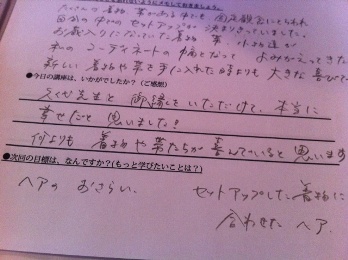 たくさんの着物、帯がある中でも 固定観念にとらわれ
自分の中の セットアップが 決まりきっていました。
お蔵入りになっていた着物、帯、小物達が
私の コーディネートの幅となって よみがえってきた
新しい着物や帯を手に入れた時よりも 大きな喜びで
●今日の講座は、いかがでしたか？（ご感想）
先生と 御縁をいただけて、本当に
幸せだと 思いました！
何よりも 着物や帯たちが 喜んでいると 思います
●次回の目標は、なんですか？(もっと学びたいことは？)
ヘアの おさらい、
セットアップした着物に
合わせた ヘア.